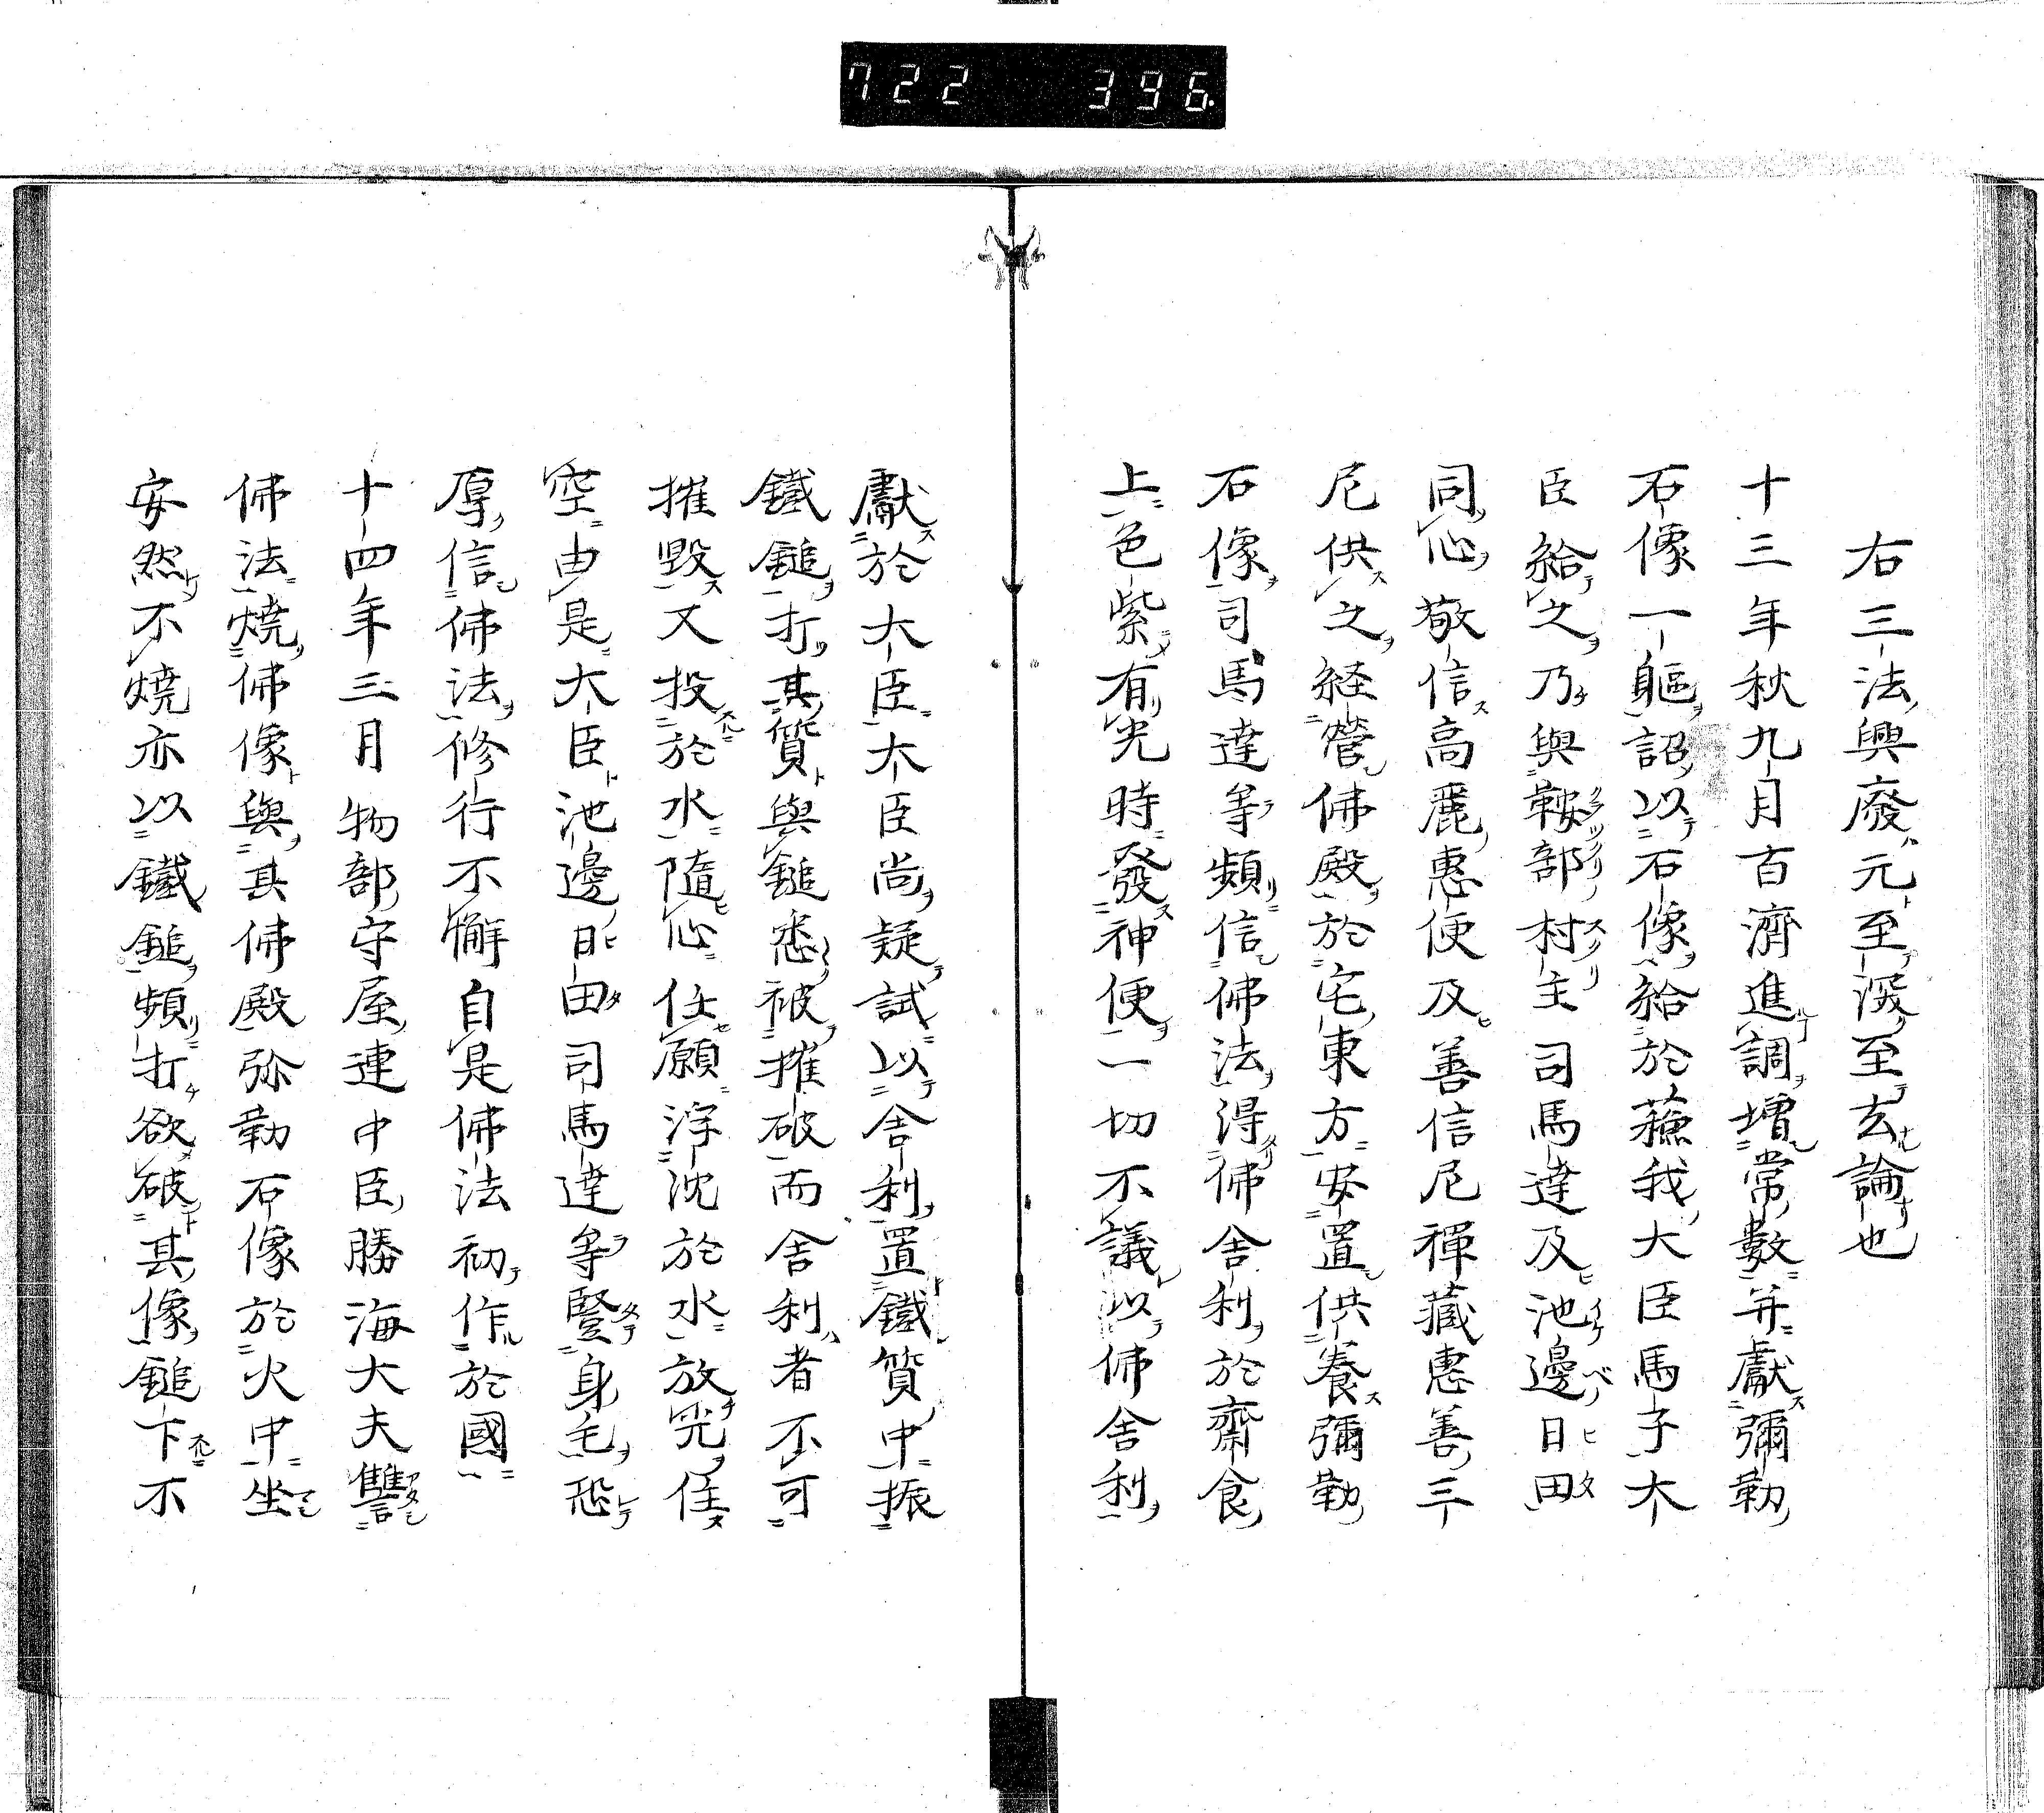 722 396
右三法興廢元至深至玄論也
十三年秋九月百濟進調增常數并獻彌勒
石像一軀詔以石像給於蘓我大臣馬子大
臣給之乃與鞍部村主司馬達及池邊日田
同心敬信高麗惠便及善信尼禪藏惠善三
尼供之経營佛殿於宅東方安置供養彌勒
石像司馬達等頻信佛法得佛舍利於齋食
上色紫有光時發神便一切不議以佛舍利
獻於大臣大臣尚疑試以舍利置鐵質中振
鐵鎚打其質與鎚悉被摧破而舍利者不可
摧毀又投於水隨心任願浮沈於水放光住
空由是大臣池邊日田司馬達等竪身毛恐
厚信佛法修行不懈自是佛法初作於國
十四年三月物部守屋連中臣勝海大夫讐
佛法燒佛像與其佛殿弥勒石像於火中坐
安然不燒亦以鐵鎚頻打欲破其像鎚下不